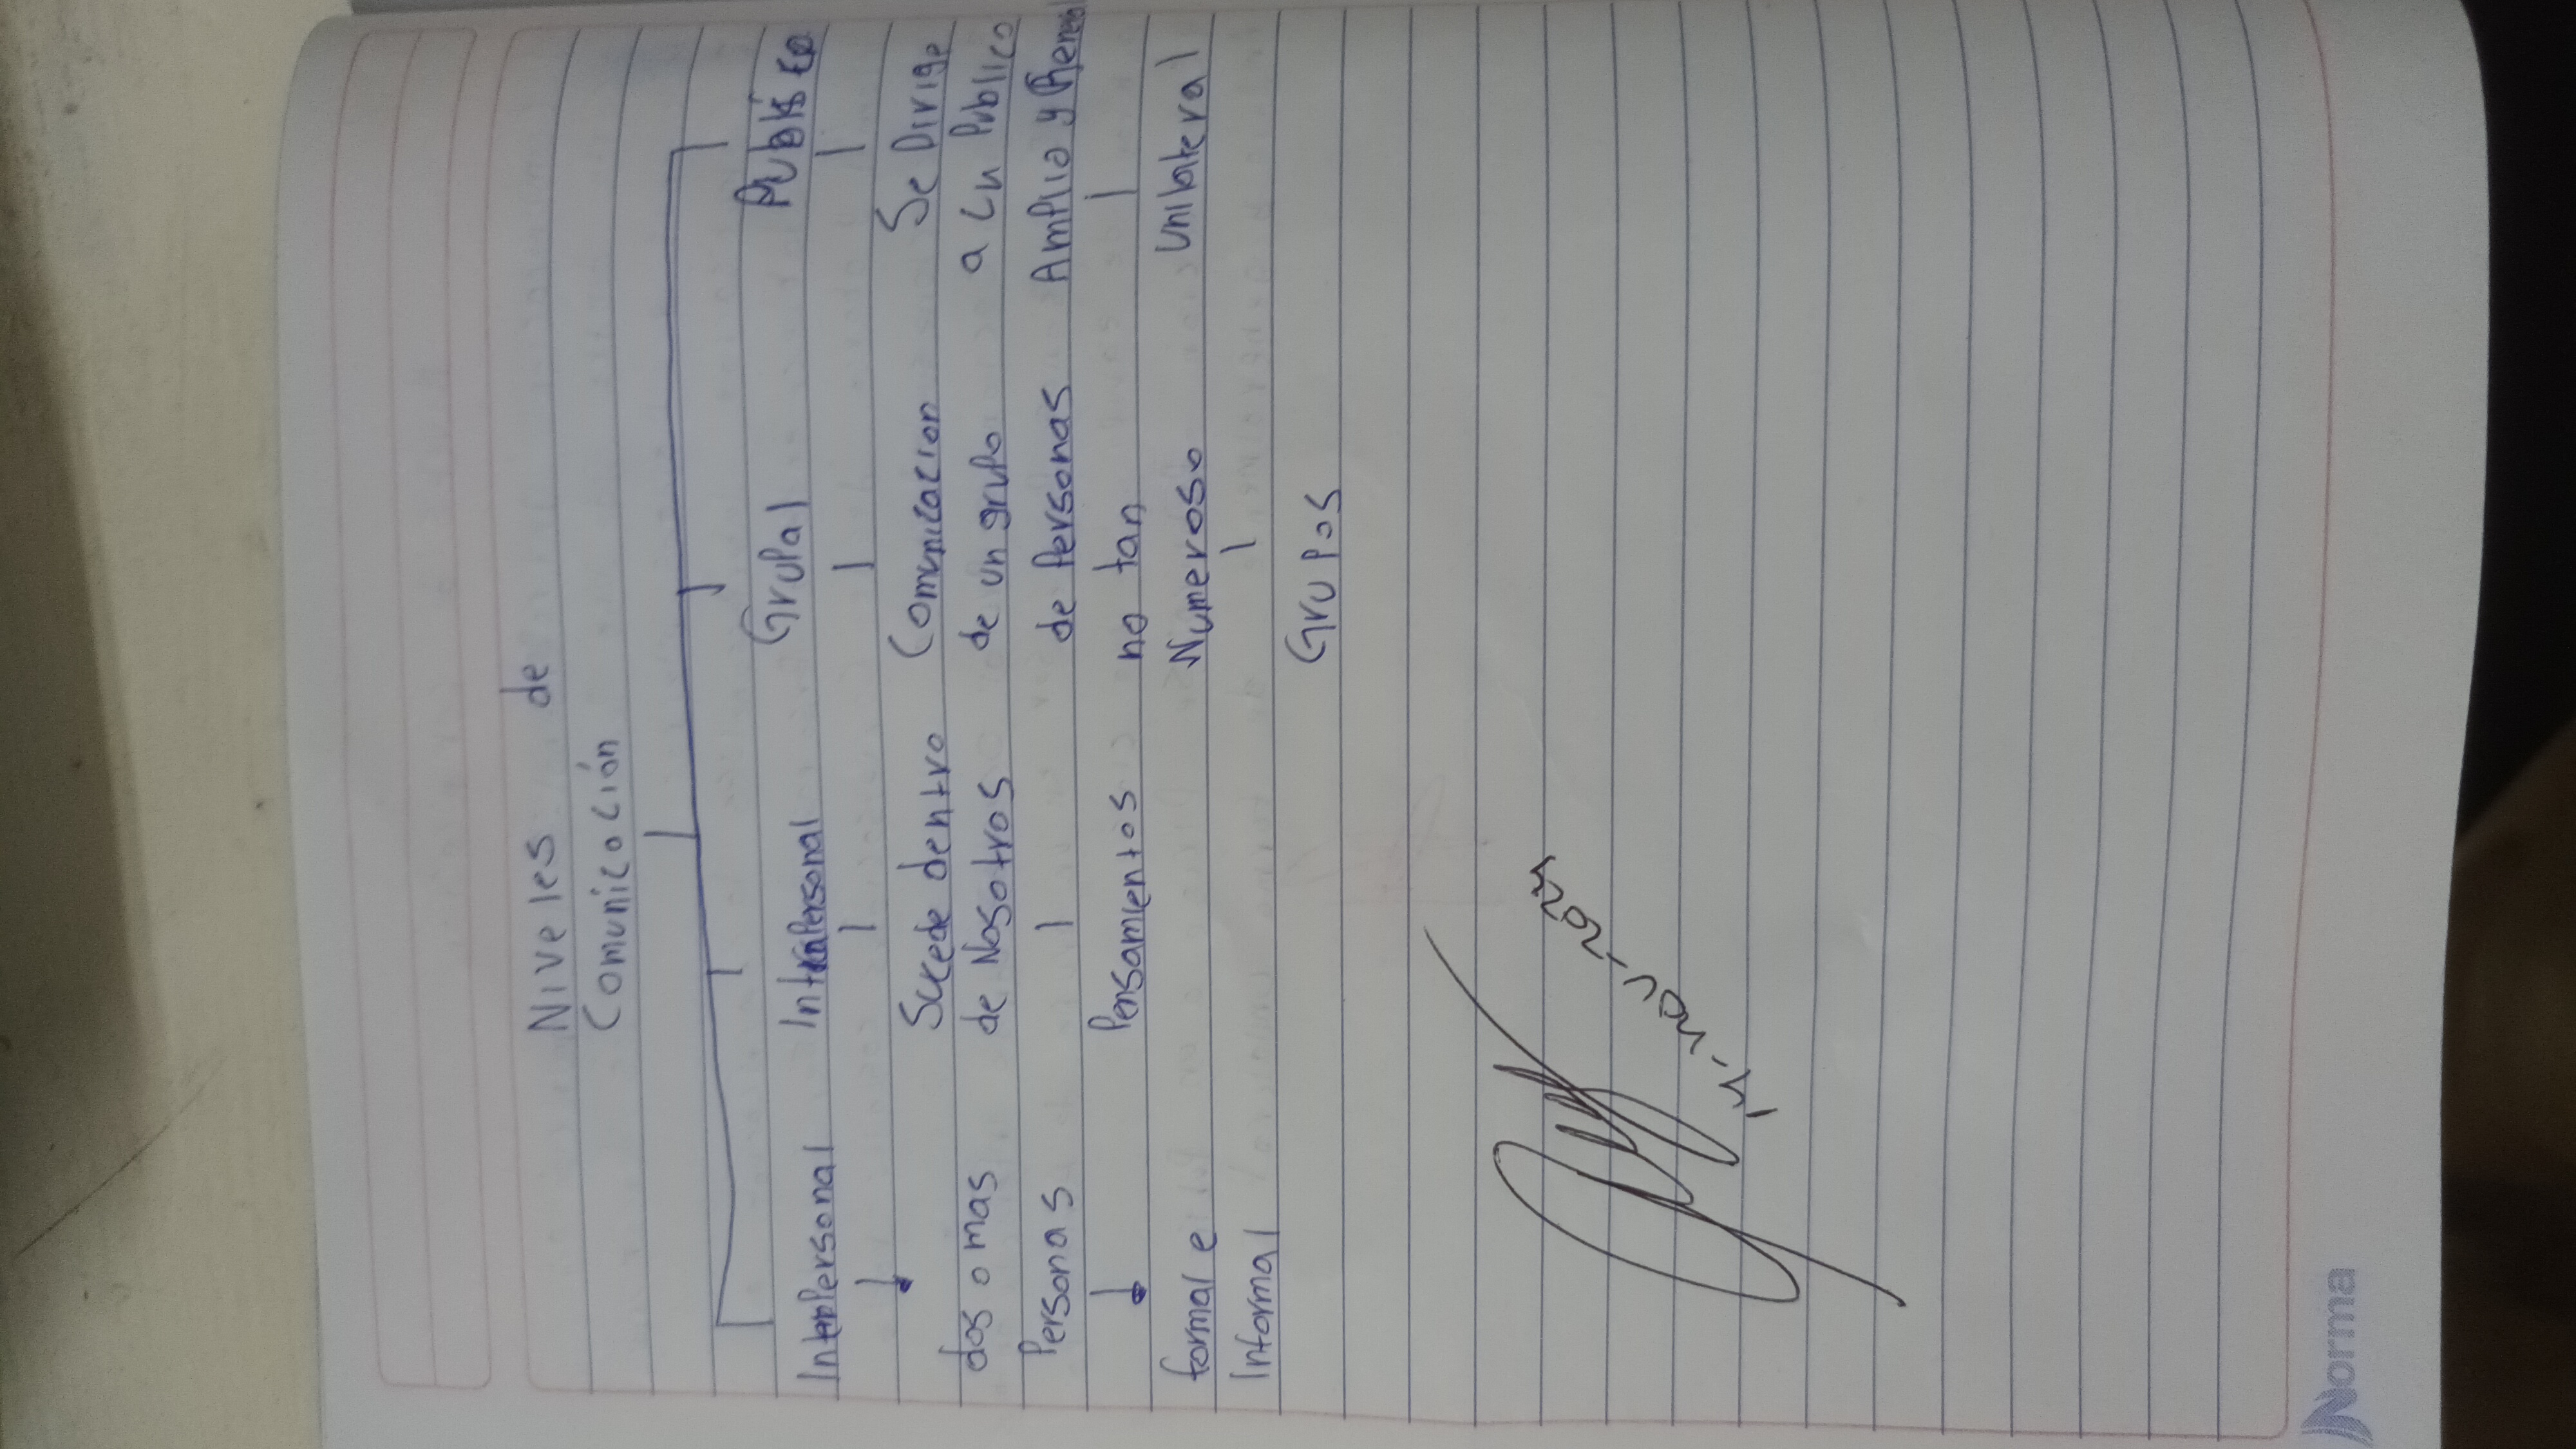 Niveles de
Comunicación
Interpersonal Intrapersonal Grupal Publico
dos o mas
Personas
formal e
Informal
Sucede dentro
de Nosotros
Pensamientos
Comunicacion
de un grupo
de Personas
no tan
Numeroso
Grupos
Se Dirige
a Publico
Amplio y
Unilateral
Norma